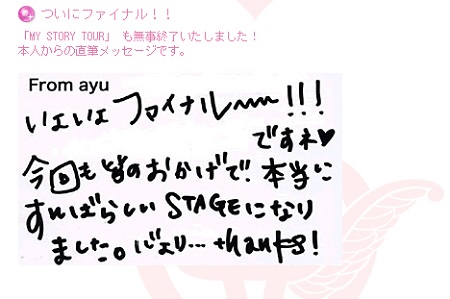 ついにファイナル！！
「MY STORY TOUR」 も無事終了いたしました！
本人からの直筆メッセージです。
From ayu
いよいよファイナル〜〜!!!
ですネ♥
今回も皆のおかげで本当に
すんばらしいSTAGEになり
ました。 thanks!